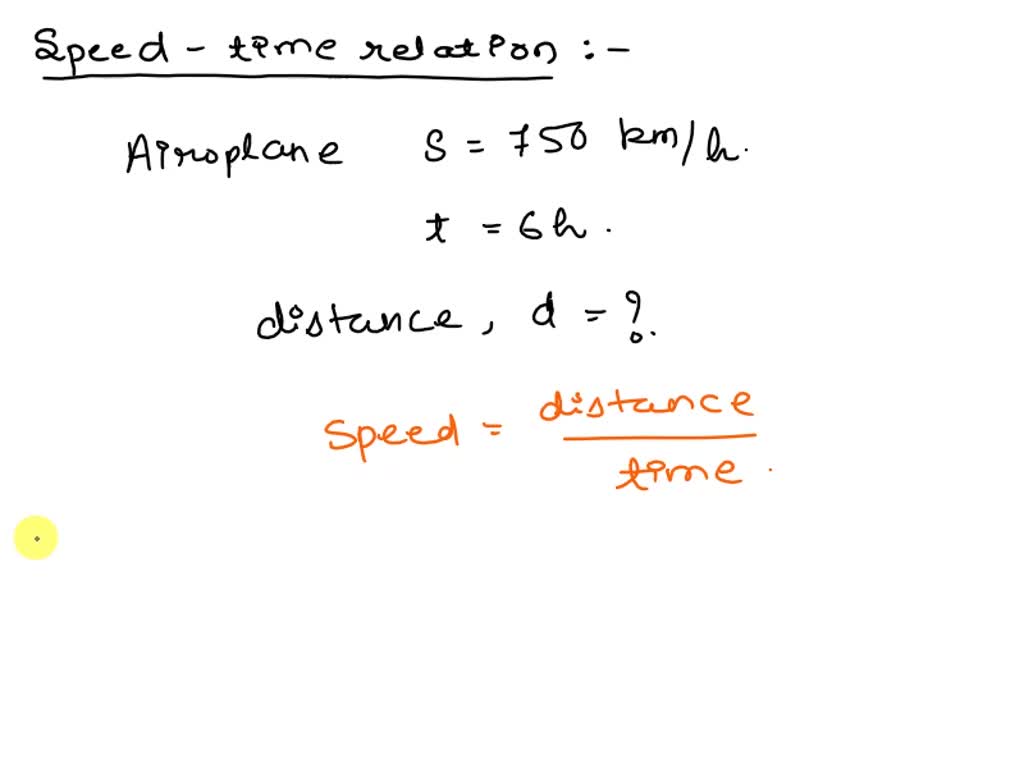 Speed - time relation :-
Airoplane S = 750 km/h.
t = 6h.
distance, d = ?.
Speed = distance
time.